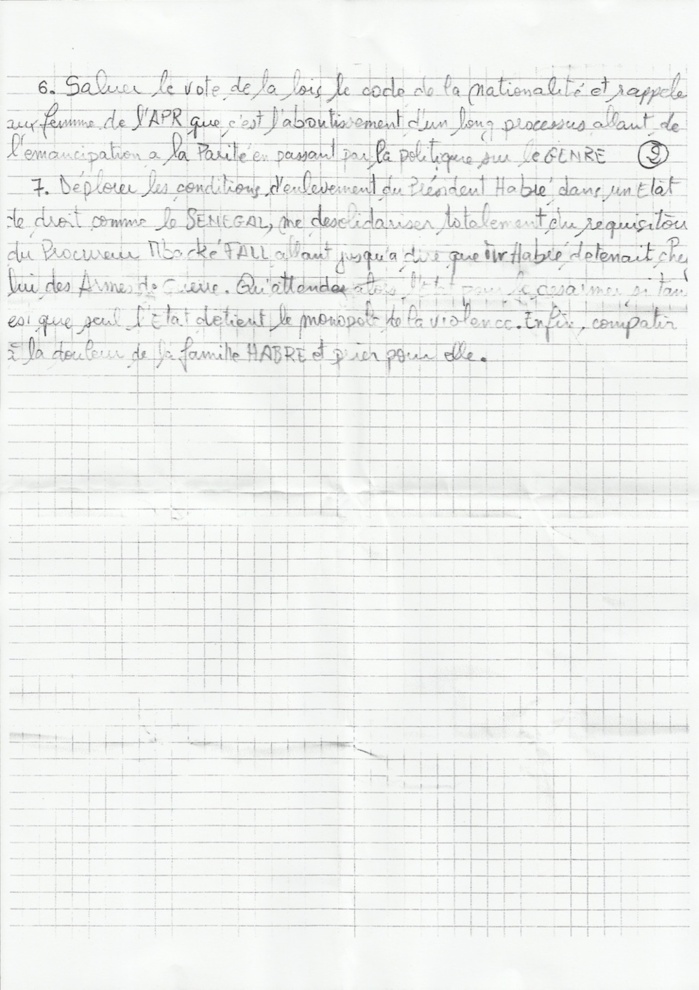 6. Saluer le vote de la lois le code de la nationalité et rappele
aux femme de l'APR que c'est l'aboutissement d'un long processus allant de
l'émancipation a la Parité en passant par la politique sur le GENRE 2
7. Déplorer les conditions d'enlevement du Président Habré dans un Etat
de droit comme le SENEGAL, me desolidariser totalement du requisitoi
du Procureur Mbacké FALL allant jusqu'a dire que Habré detenait che
lui des Armes de Guerre. Qu'attendai alors l'Etat pour le desarmer si tan
est que seul l'Etat detient le monopole de la violence. Enfin, compatir
à la douleur de la famille HABRE et prier pour elle.